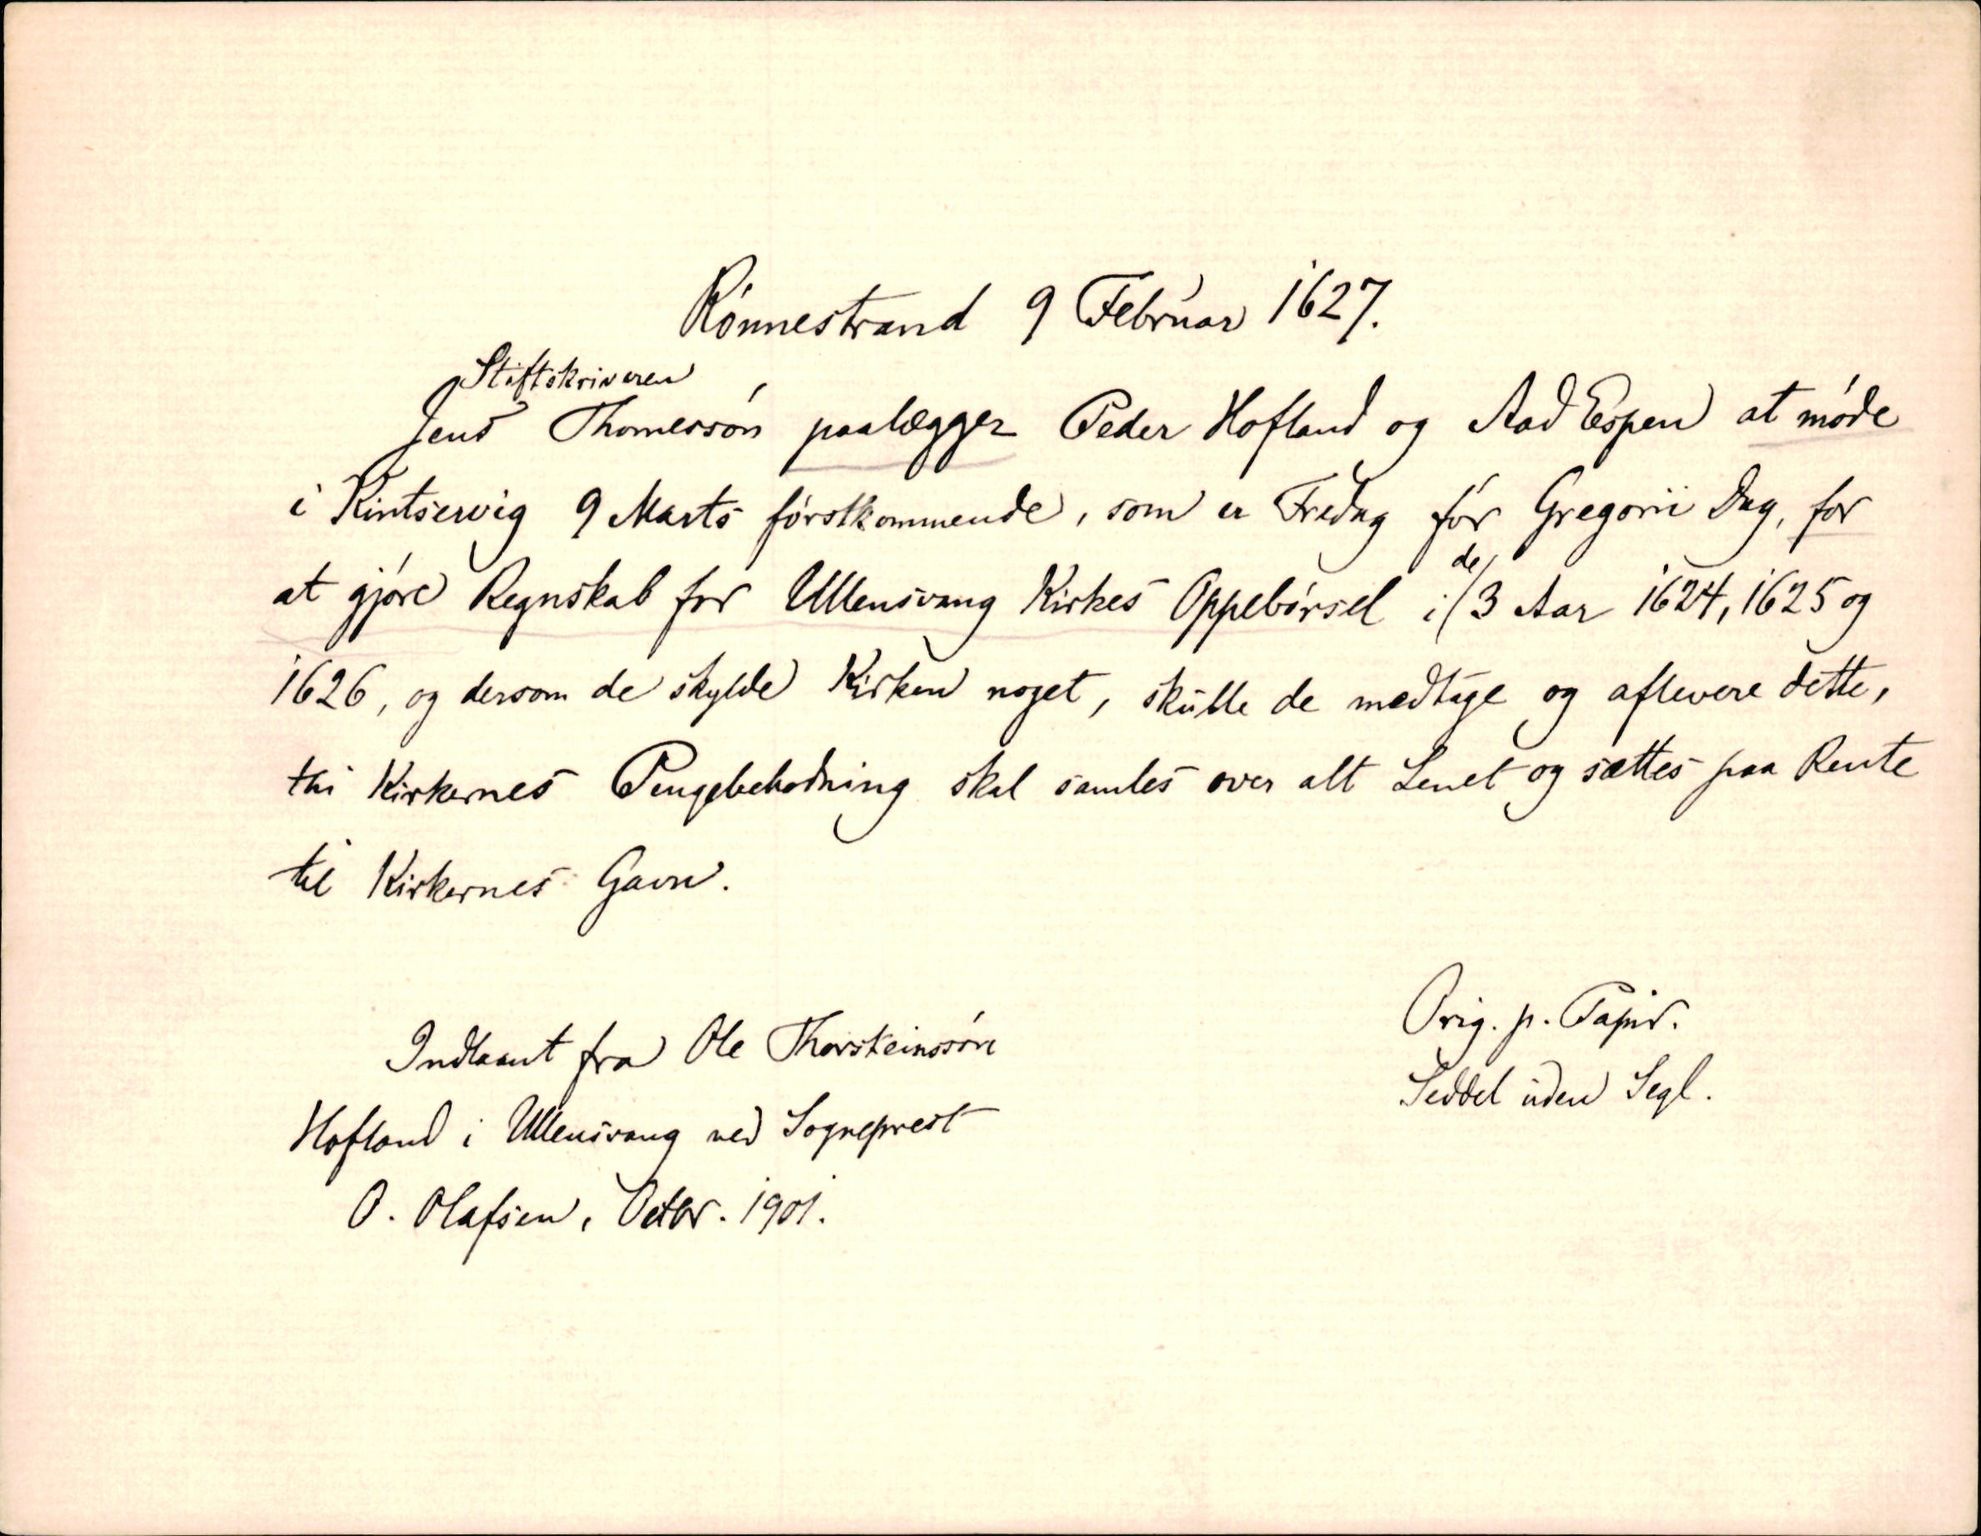 Rønnestrand 9 Februar 1627.
Stiftskriveren
Jens Thomessøn paalægger Peder Hofland og Aad Espen at møde
i Kintservig 9 Marts førstkommende, som er Fredag før Gregorii Dag, for
at gjøre Regnskab for Ullensvang Kirkes Oppebørsel i de 3 Aar 1624, 1625 og
1626, og dersom de skylde Kirken noget, skulle de medtage og aflevere dette,
thi Kirkernes Pengebeholdning skal samles over alt Lenet og sættes paa Rente
til Kirkernes Gavn.
Indlaant fra Ole Thorsteinssøn
Hofland i Ullensvang ved Sogneprest
O. Olafsen, Octbr. 1901.
Orig. p. Papir.
Seddel uden Segl.